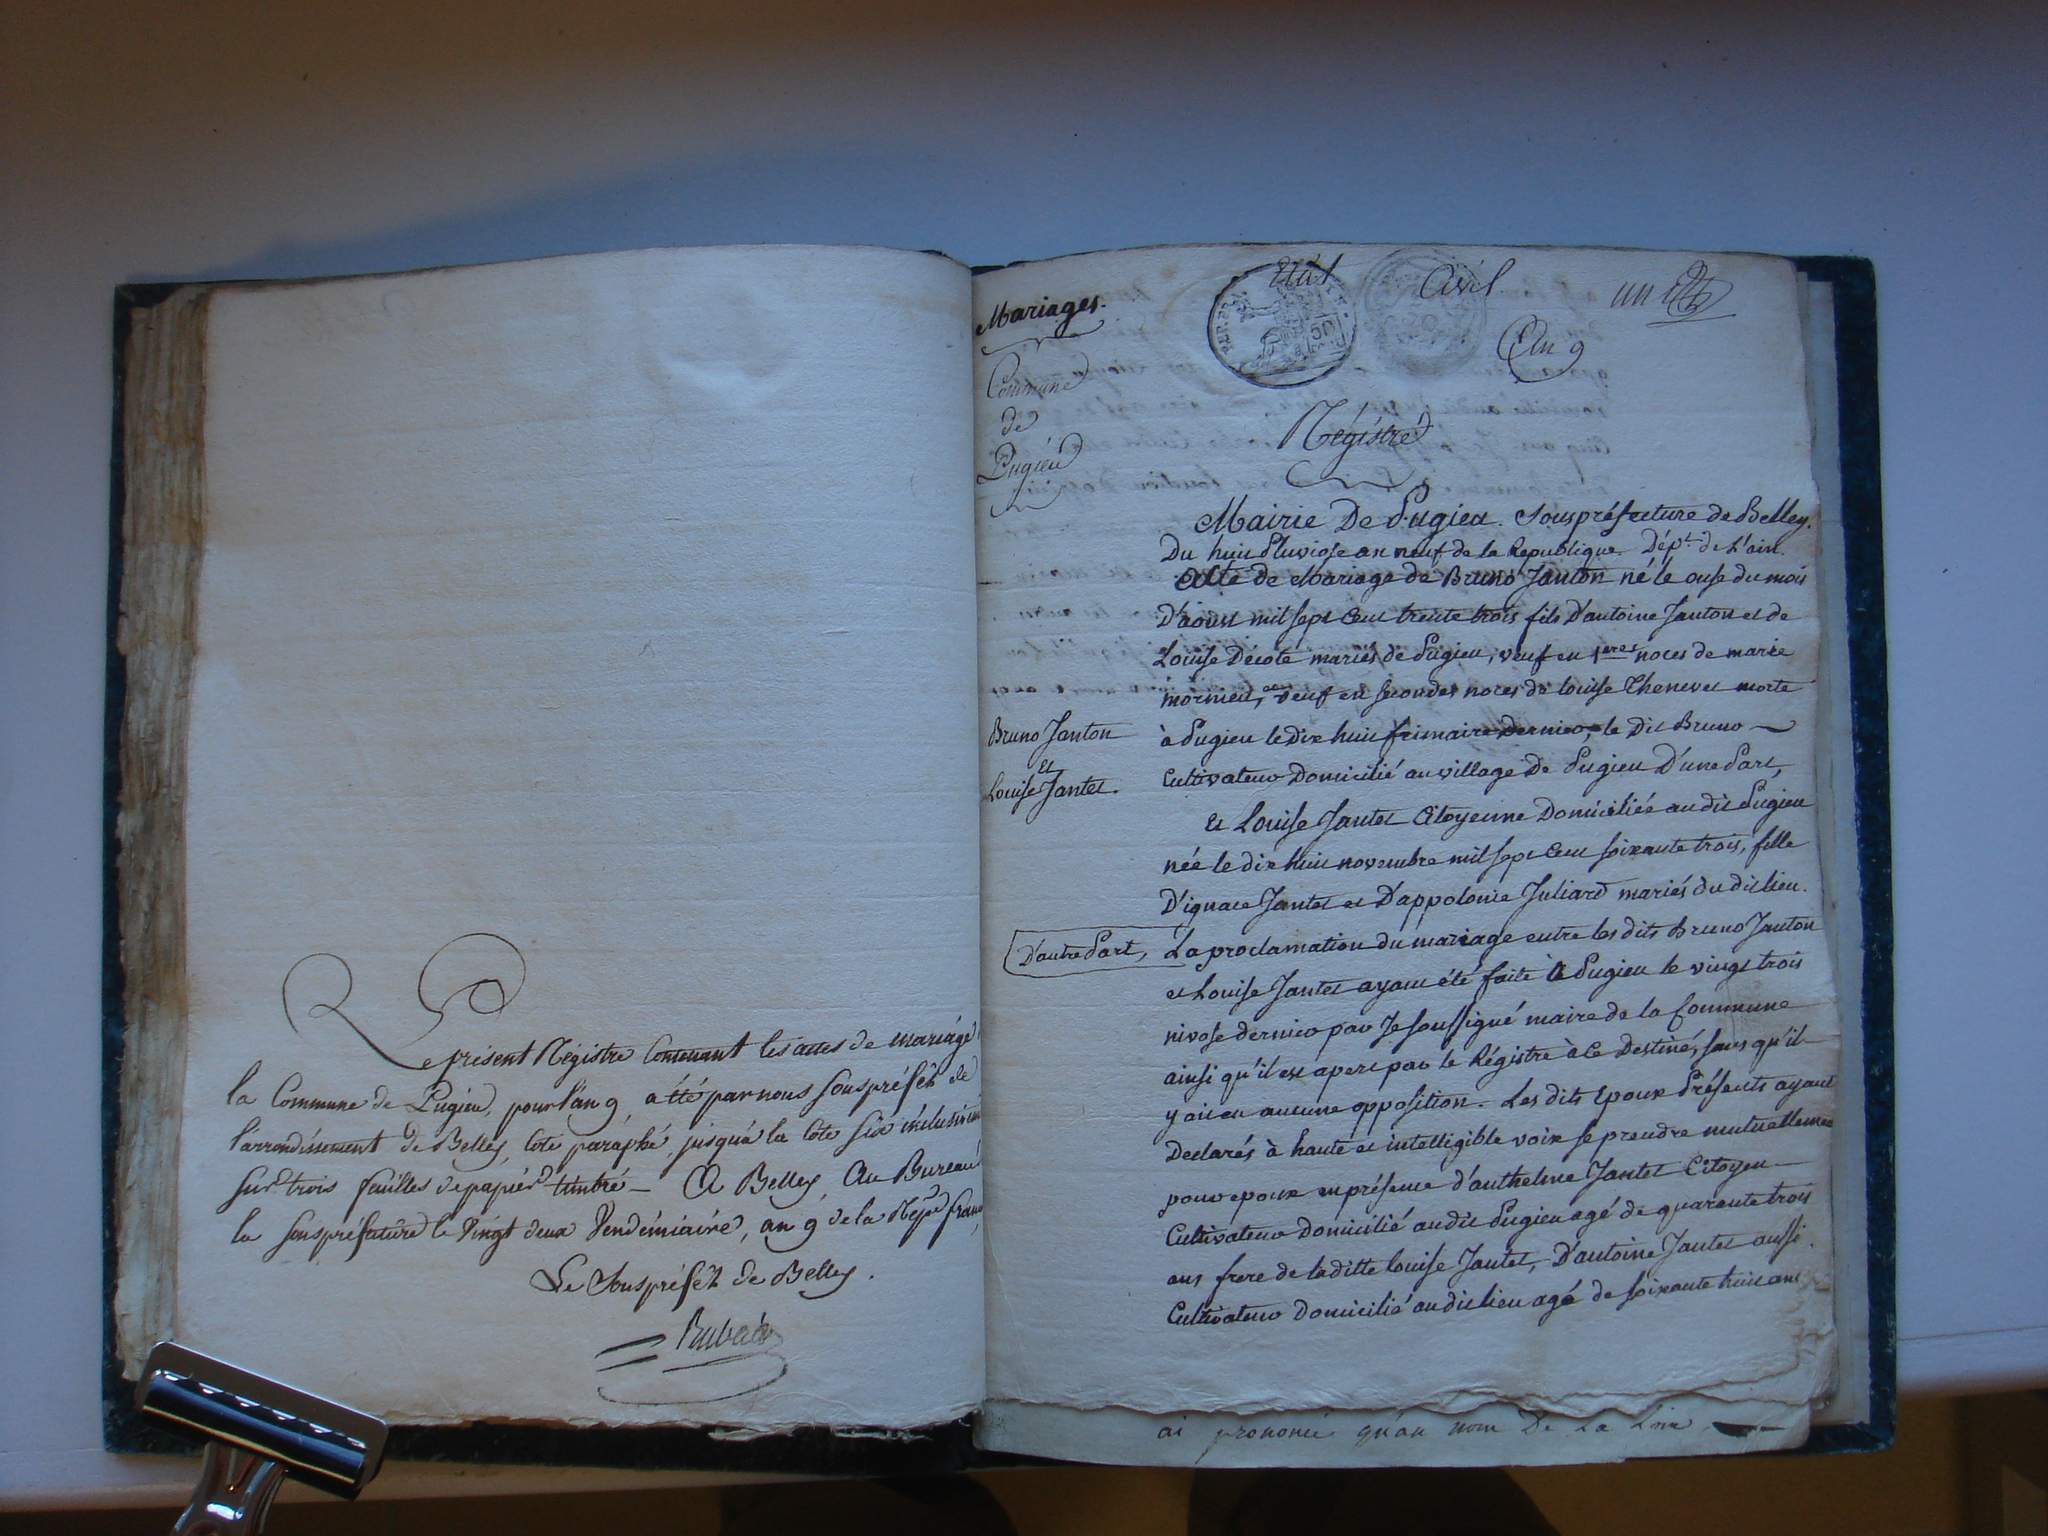 Le présent Régistre Contenant les actes de mariage
la Commune de Pugieu, pour l'an 9, a été par nous souspréfêt de
l'arrondissement de Belley, coté paraphé, jusqu'à la cote six inclusivem
sur trois feuilles de papier timbré – A Belley, Au Bureau
la souspréfecture le Vingt deux Vendémiaire, an 9 de la Rép. franc
Le Souspréfêt de Belley.
Mariages.
Commune
de
Pugieu
Etat Civil.
un
An 9
50
Régistre
Mairie De Pugieu. Souspréfecture de Belley.
Du huit Pluviose an neuf de la Republique. Dépt. de L'ain.
Acte de Mariage de Bruno Janton né le onse du mois
D'aoust mil sept cent trente trois fils D'antoine Janton et de
Louise Decote mariés de Pugieu, veuf en 1eres noces de marie
mornieu, et veuf en secondes noces de louise Thenevet morte
à Pugieu le dix huit frimaire dernier, le Dit Bruno
Cultivateur Domicilié au village De Pugieu D'une Part,
Bruno Janton
et
Louise Jantet.
et Louise Jantet Citoyenne Domiciliée au dit Pugieu
née le dix huit novembre mil sept Cent soixante trois, fille
D'ignace Jantet et D'appolonie Juliard mariés du dit lieu.
D'autre Part, La proclamation du mariage entre les dits Bruno Janton
et Louise Jantet ayant été faite à Pugieu le vingt trois
nivose dernier par Je soussigné maire de la Commune
ainsi qu'il est apert par le Régistre à ce Destiné, sans qu'il
y ait eu aucune opposition. Les dits Epoux Présents ayant
Declarés à haute et intelligible voix se prendre mutuellement
pour epoux en présence d'anthelme Jantet Citoyen
Cultivateur Domicilié au dit Pugieu agé de quarante trois
ans frere de la ditte louise Jantet, D'antoine Jantet aussi
Cultivateur Domicilié au dit lieu agé de soixante huit ans
ai prononcé qu'au nom De La Loix